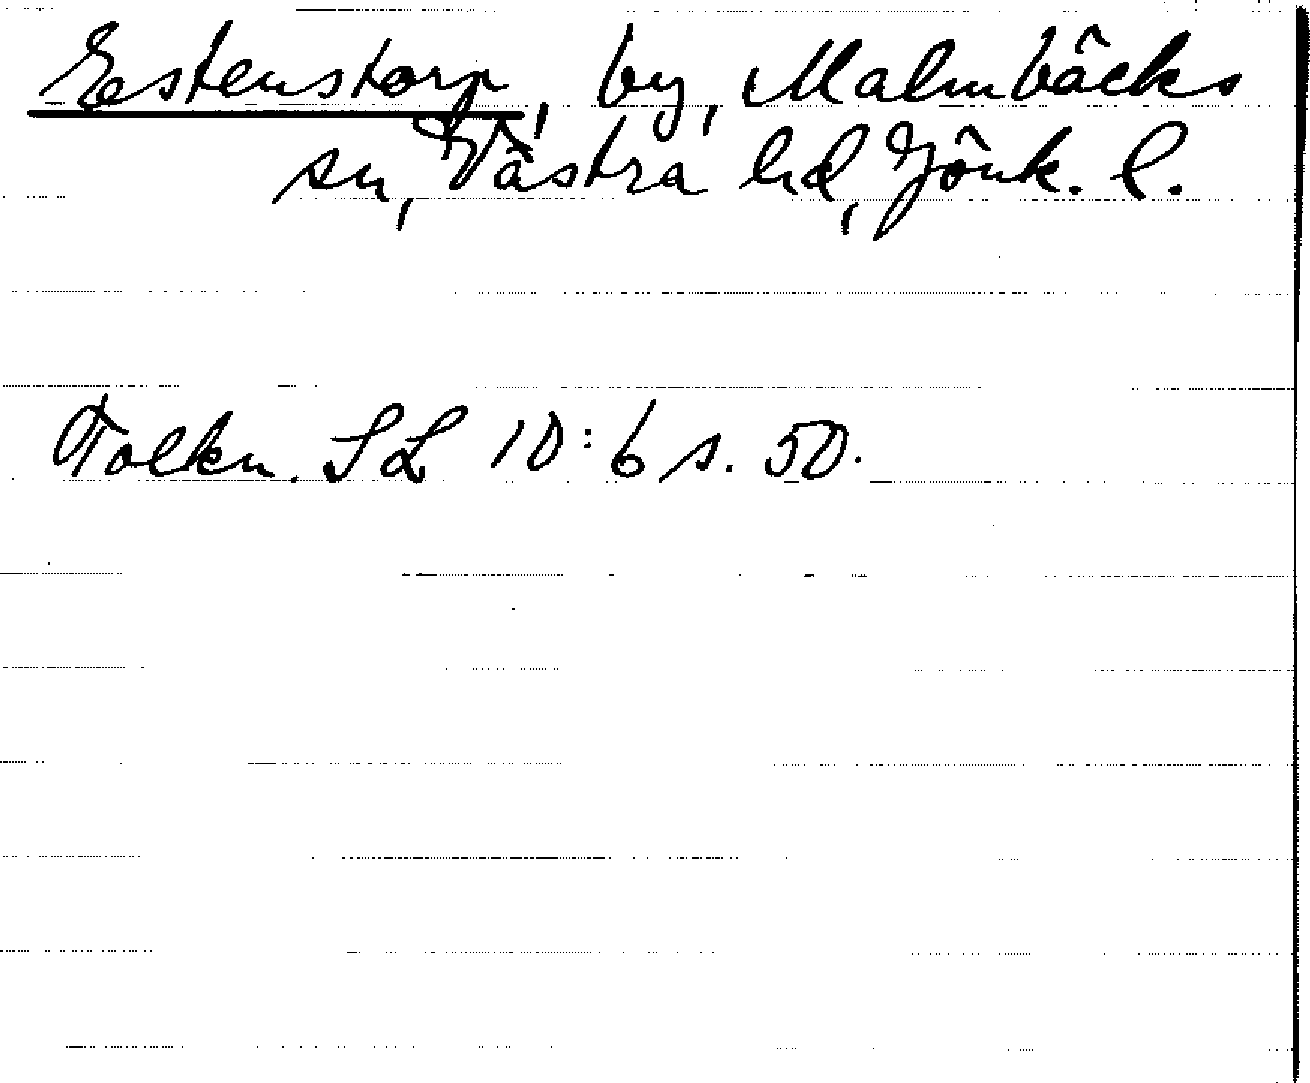 Estenstorp, by, Malmbäcks
sn, Västra hd, Jönk. l.
Tolkn. SL 10:6 s. 50.